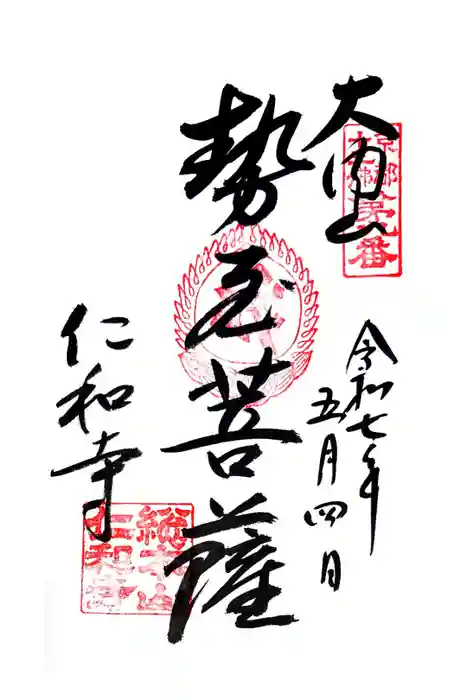 京都
十三佛
第九番
大内山
令和七年
五月四日
勢至菩薩
仁和寺
総本山
仁和寺